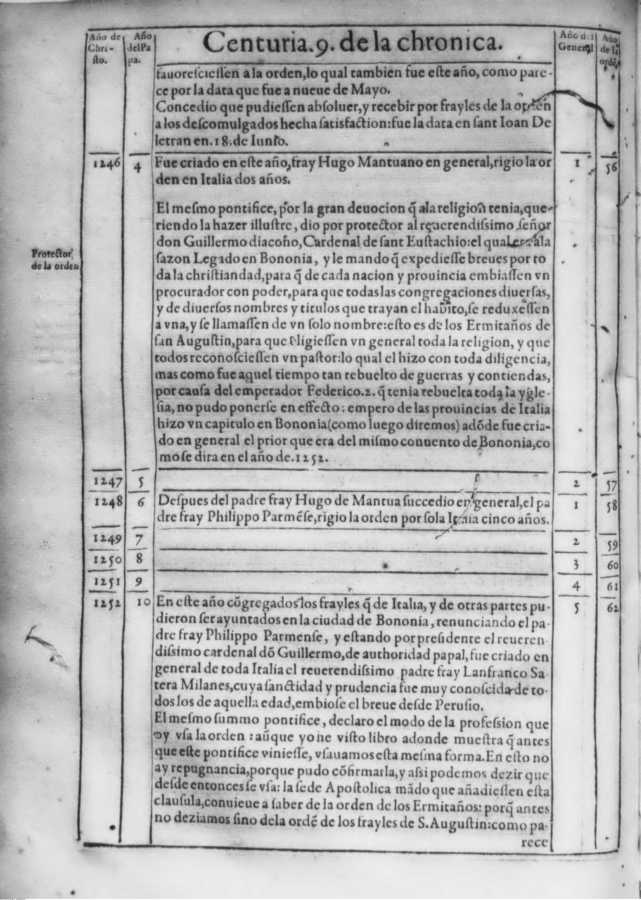 Año de Chri- sto.
Año del Pa pa.
Centuria.9. de la chronica.
Año del General
Año de la ordē
fauoreſcieſſen a la orden, lo qual tambien fue eſte año, como pare-
ce por la data que fue a nueue de Mayo.
Concedio que pudieſſen abſoluer, y recebir por frayles de la orden
a los deſcomulgados hecha ſatisfaction: fue la data en ſant Ioan De
letran en. 18. de Iunio.
1246 4 Fue criado en eſte año, fray Hugo Mantuano en general, rigio la or 1 56
den en Italia dos años.
El meſmo pontifice, por la gran deuocion q̄ ala religion tenia, que-
riendo la hazer illuſtre, dio por protector al reuerendiſsimo ſeñor
don Guillermo diacono, Cardenal de ſant Euſtachio: el qual era ala
Protector
de la orden
ſazon Legado en Bononia, y le mando q̄ expedieſſe breues por to
da la chriſtiandad, para q̄ de cada nacion y prouincia embiaſſen vn
procurador con poder, para que todas las congregaciones diuerſas,
y de diuerſos nombres y titulos que trayan el habito, ſe reduxeſſen
a vna, y ſe llamaſſen de vn ſolo nombre: eſto es de los Ermitaños de
ſan Auguſtin, para que eligieſſen vn general toda la religion, y que
todos reconoſcieſſen vn paſtor: lo qual el hizo con toda diligencia,
mas como fue aquel tiempo tan rebuelto de guerras y contiendas,
por cauſa del emperador Federico.2. q̄ tenia rebuelta toda la ygle-
ſia, no pudo ponerſe en effecto: empero de las prouincias de Italia
hizo vn capitulo en Bononia (como luego diremos) adōde fue cria-
do en general el prior que era del miſmo conuento de Bononia, co
mo ſe dira en el año de. 1252.
1247 5 2 57
1248 6 Deſpues del padre fray Hugo de Mantua ſuccedio en general, el pa 1 58
dre fray Philippo Parmēſe, rigio la orden por ſola Italia cinco años.
1249 7 2 59
1250 8 3 60
1251 9 4 61
1252 10 En eſte año cōgregados los frayles q̄ de Italia, y de otras partes pu- 5 62
dieron ſer ayuntados en la ciudad de Bononia, renunciando el pa-
dre fray Philippo Parmenſe, y eſtando por preſidente el reueren-
diſsimo cardenal dō Guillermo, de authoridad papal, fue criado en
general de toda Italia el reuerendiſsimo padre fray Lanfranco Sa
tera Milanes, cuya ſanctidad y prudencia fue muy conoſcida de to-
dos los de aquella edad, embioſe el breue deſde Peruſio.
El meſmo ſummo pontifice, declaro el modo de la profeſsion que
oy vſa la orden: aūque yo ne viſto libro adonde mueſtra q̄ antes
que eſte pontifice vinieſſe, vſauamos eſta meſma forma. En eſto no
ay repugnancia, porque pudo cōfirmarla, y aſsi podemos dezir que
deſde entonces ſe vſa: la ſede Apoſtolica mādo que añadieſſen eſta
clauſula, conuiene a ſaber de la orden de los Ermitaños: porq̄ antes
no deziamos ſino dela ordē de los frayles de S. Auguſtin: como pa-
rece